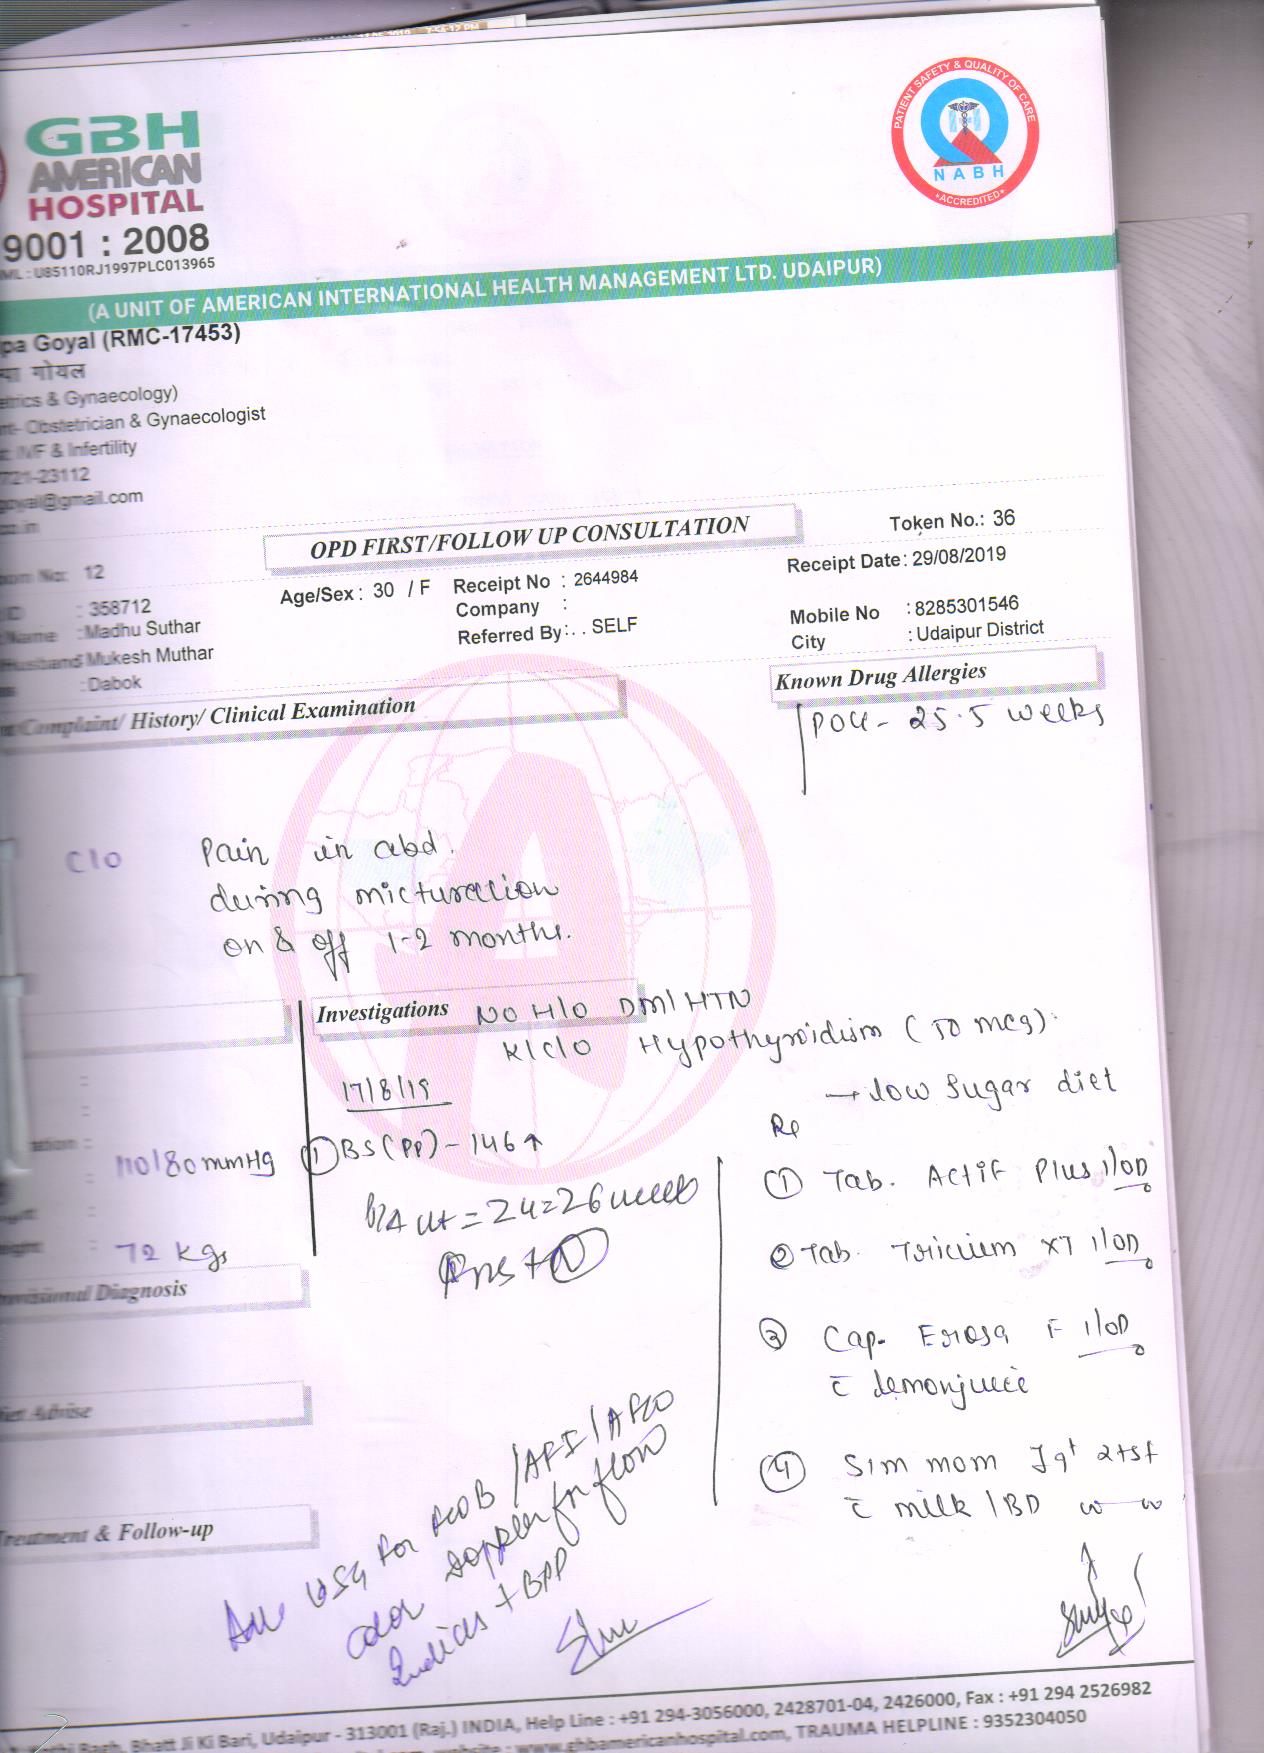 7:54:12 PM
GBH
AMERICAN
HOSPITAL
9001 : 2008
U85110RJ1997PLC013965
PATIENT SAFETY & QUALITY OF CARE
NABH
ACCREDITED
(A UNIT OF AMERICAN INTERNATIONAL HEALTH MANAGEMENT LTD. UDAIPUR)
pa Goyal (RMC-17453)
गोयल
& Gynaecology)
Obstetrician & Gynaecologist
IVF & Infertility
721-23112
goyal@gmail.com
OPD FIRST/FOLLOW UP CONSULTATION
Token No.: 36
No: 12
Age/Sex : 30 / F
Receipt No : 2644984
Receipt Date : 29/08/2019
ID : 358712
Company :
Mobile No : 8285301546
Name : Madhu Suthar
Referred By : . . SELF
City : Udaipur District
Husband Mukesh Muthar
: Dabok
Complaint/ History/ Clinical Examination
Known Drug Allergies
POG - 25.5 weeks
C/O Pain in abd.
during micturation
on & off 1-2 months.
Investigations
NO H/O DM/HTN
K/C/O Hypothyroidism (50 mcg).
17/8/19
→ low sugar diet
① BS(PP) - 146↑
110/80 mmHg
72 kgs
P/A ut = 24-26 weeks
Rx
① Tab. Actif Plus 1/OD
② Tab. XT 1/OD
③ Cap. F 1/OD
c̄ lemonjuice
④ Sim mom 2tsf
c̄ milk /BD
Provisional Diagnosis
Diet Advise
Treatment & Follow-up
USG for /AFI/
color doppler for flow
Indices + BPP
Bagh, Bhatt Ji Ki Bari, Udaipur - 313001 (Raj.) INDIA, Help Line : +91 294-3056000, 2428701-04, 2426000, Fax : +91 294 2526982
website : www.gbhamericanhospital.com, TRAUMA HELPLINE : 9352304050